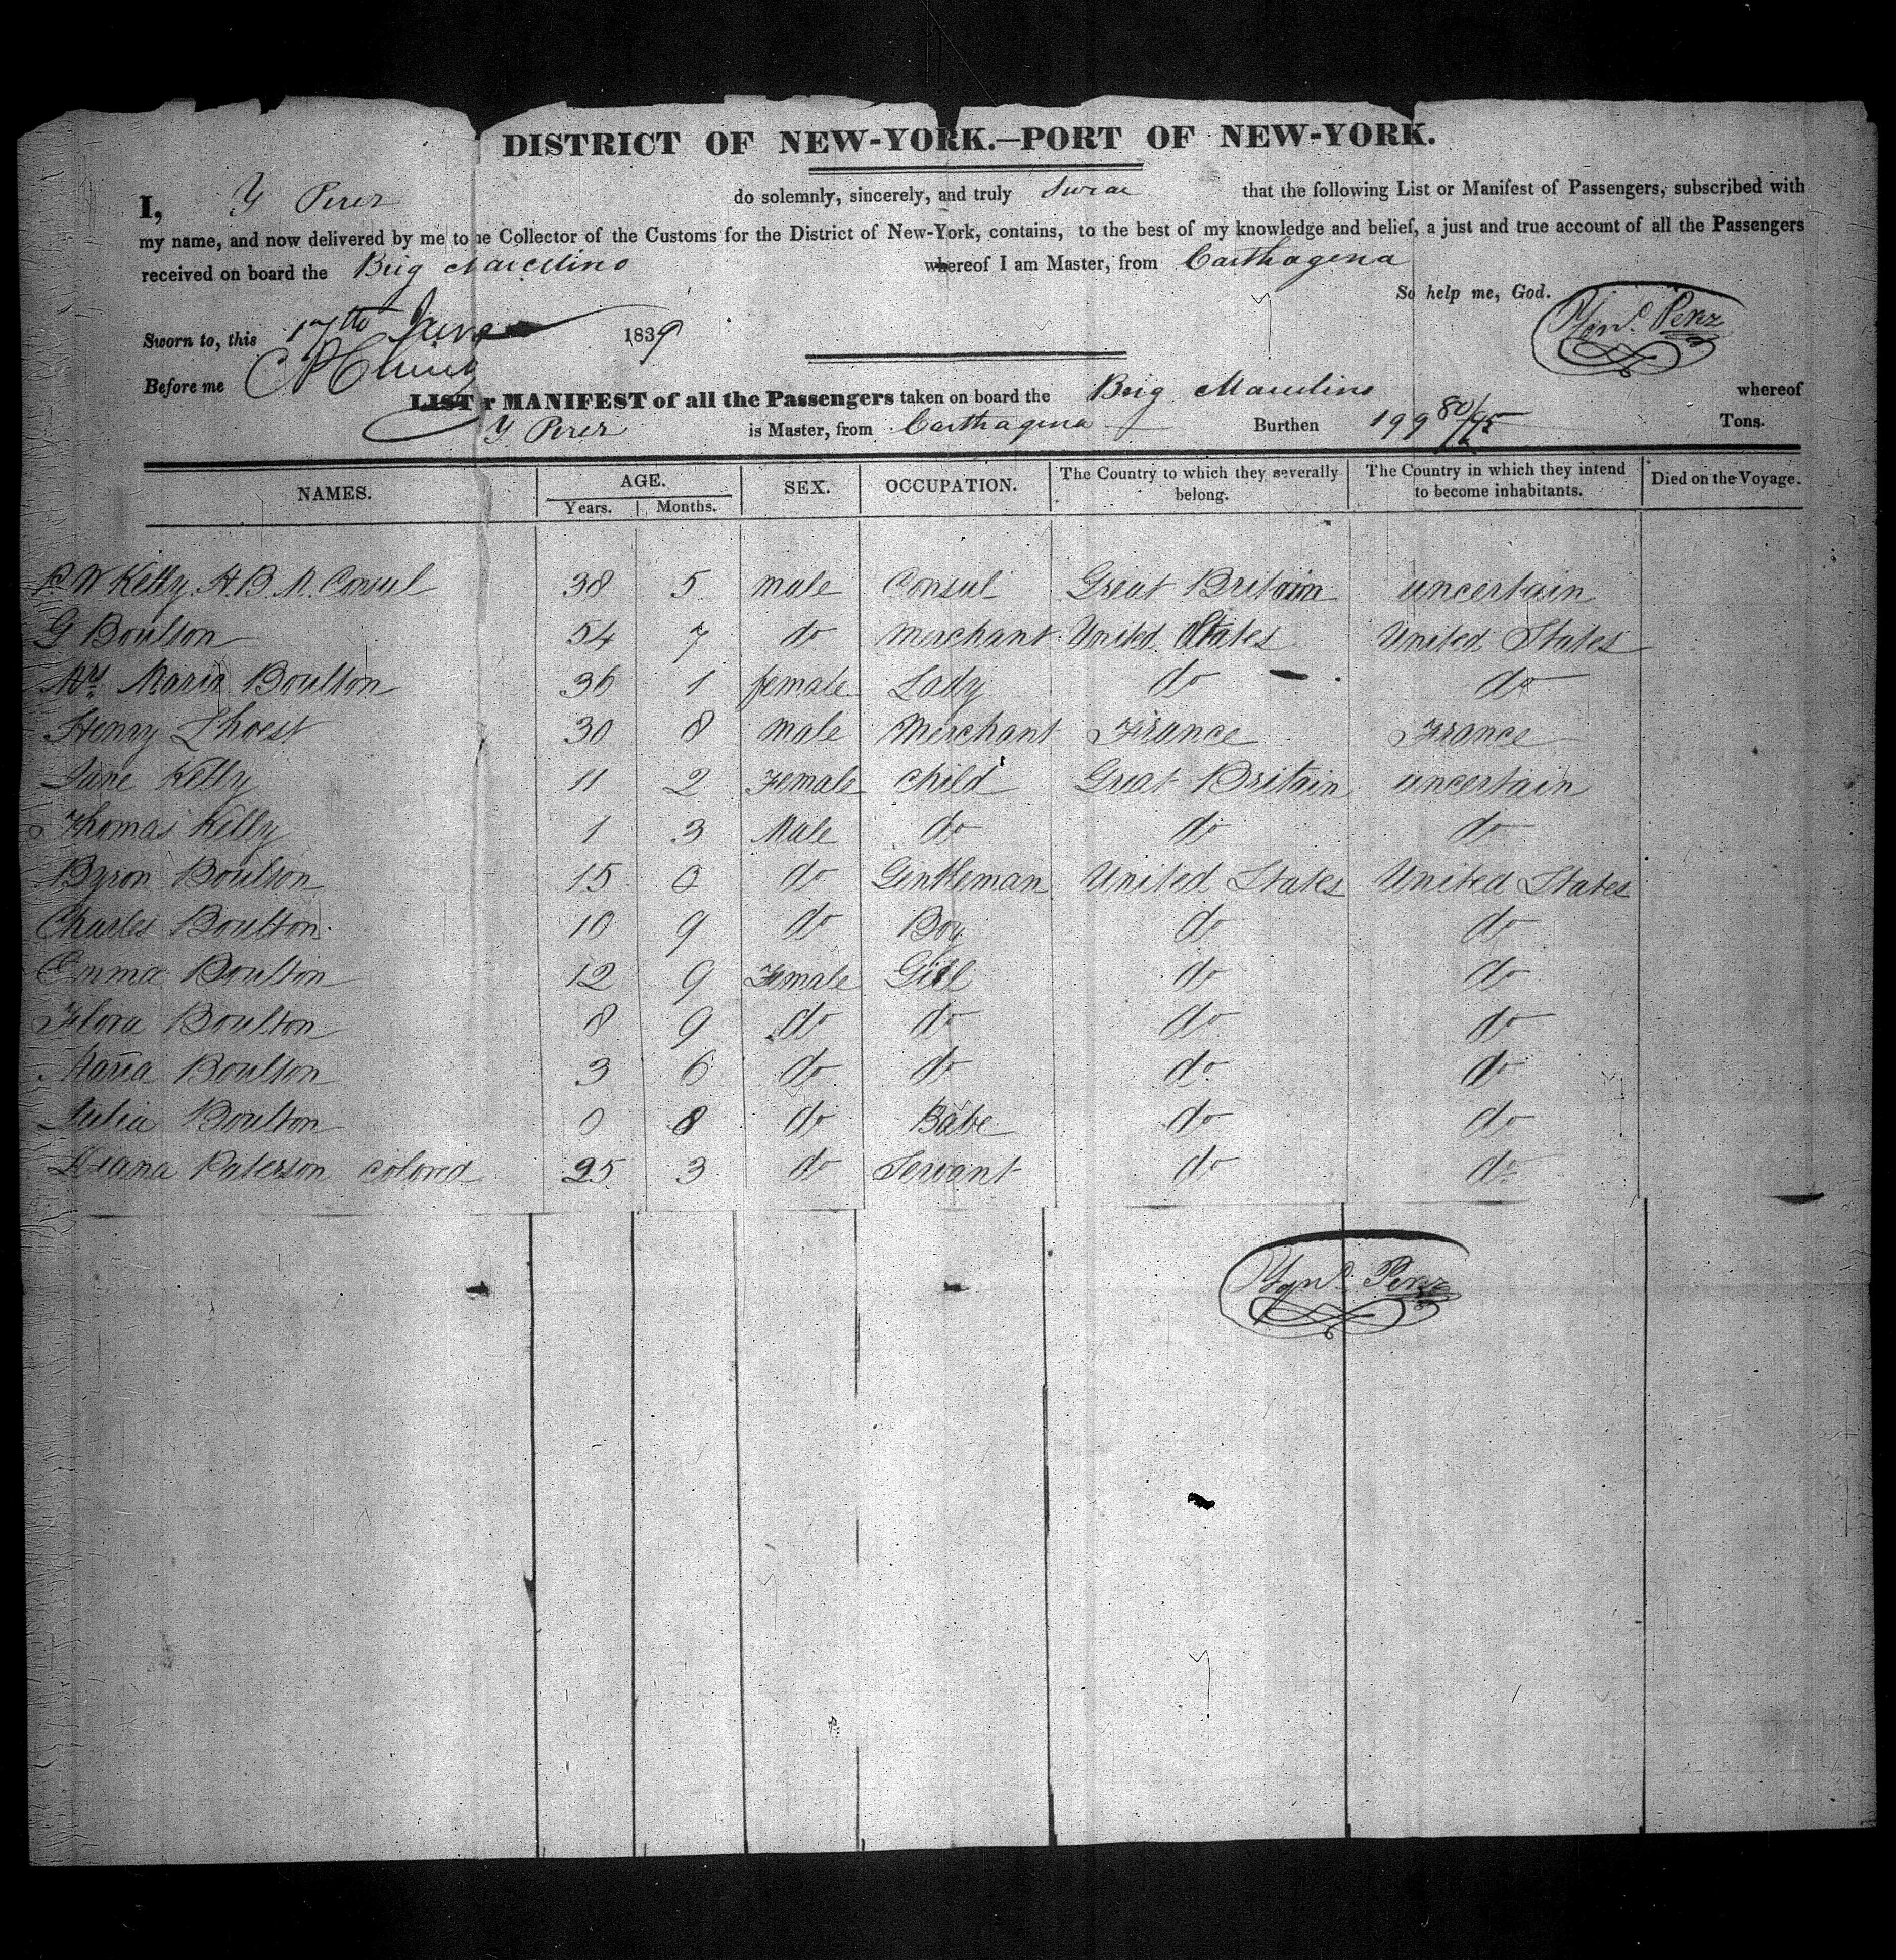 DISTRICT OF NEW-YORK.—PORT OF NEW-YORK.
I, Y Perez do solemnly, sincerely, and truly swear that the following List or Manifest of Passengers, subscribed with
my name, and now delivered by me to he Collector of the Customs for the District of New-York, contains, to the best of my knowledge and belief, a just and true account of all the Passengers
received on board the Brig Marcelino whereof I am Master, from Carthagena
So help me, God. Ygno. Perez
Sworn to, this 17th June 1839
Before me
LIST r MANIFEST of all the Passengers taken on board the Brig Marcelino whereof
Y Perez is Master, from Carthagena Burthen 199 80/95 Tons.
NAMES. AGE. SEX. OCCUPATION. The Country to which they severally belong. The Country in which they intend to become inhabitants. Died on the Voyage.
Years. Months.
P. W Kelly H. B. M. Consul 38 5 male Consul Great Britain uncertain
G Boulton 54 7 do merchant United States United States
Mrs Maria Boulton 36 1 female Lady do do
Henry Lhoest 30 8 male Merchant France France
Jane Kelly 11 2 Female child Great Britain uncertain
Thomas Kelly 1 3 Male do do do
Byron Boulton 15 0 do Gentleman United States United States
Charles Boulton 10 9 do Boy do do
Emma Boulton 12 9 Female Girl do do
Flora Boulton 8 9 do do do do
Maria Boulton 3 6 do do do do
Julia Boulton 0 8 do Babe do do
Diana Paterson colored 25 3 do Servant do do
Ygno. Perez